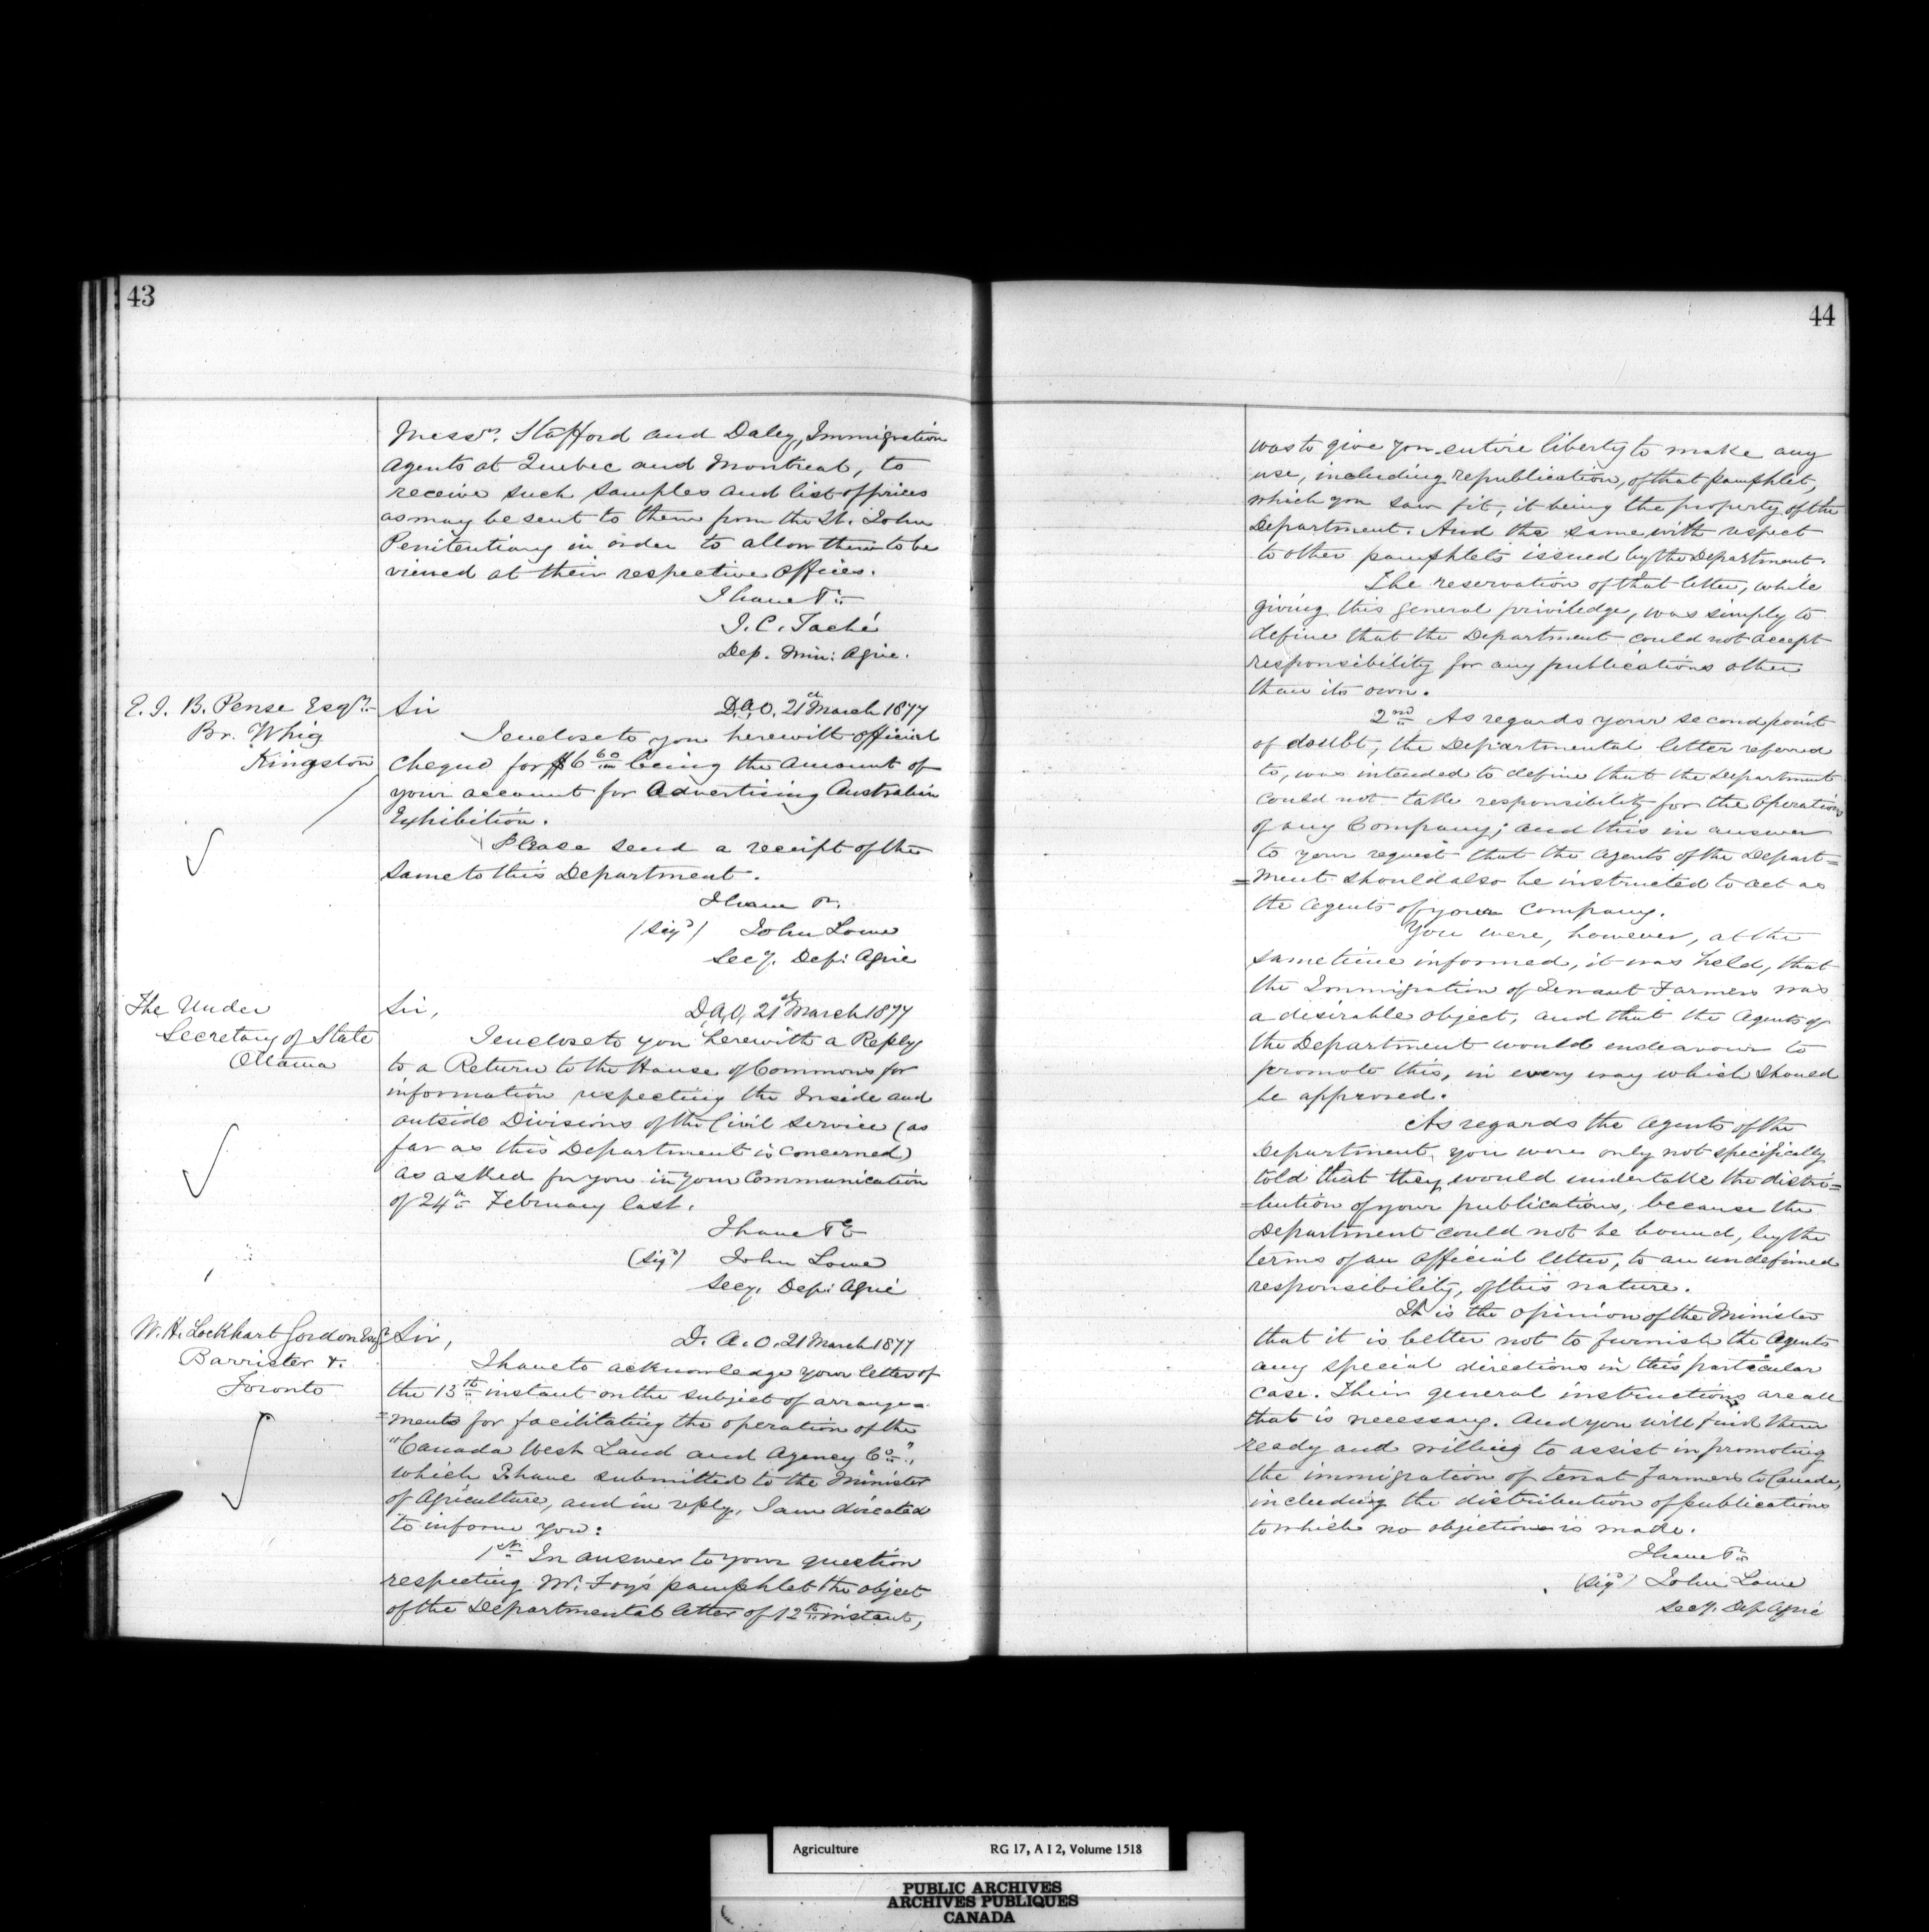 43
Messrs. Stafford and Daley, Immigration
Agents at Quebec and Montreal, to
receive such samples and list of prices
as may be sent to them from the St. John
Penitentiary in order to allow them to be
viewed at their respective offices.
I have &c
J. C. Taché
Dep. Min: Agric.
E. J. B. Pense Esqr.
Br. Whig
Kingston
Sir D.A.O. 21st March 1877
I enclose to you herewith official
cheque for $6 60 being the amount of
your account for Advertising Australian
Exhibition.
Please send a receipt of the
same to this Department.
I have &c.
(Sigd) John Lowe
Secy. Dep: Agric
The Under
Secretary of State
Ottawa
Sir, D.A.O. 21st March 1877
I enclose to you herewith a Reply
to a Return to the House of Commons for
information respecting the Inside and
outside Divisions of the Civil Service (as
far as this Department is concerned)
as asked for you in your Communication
of 24th February last.
I have &c
(Sigd) John Lowe
Secy. Dep: Agric
W. H. Lockhart Gordon Esqr
Barrister &.
Toronto
Sir, D. A. O. 21 March 1877
I have to acknowledge your letter of
the 13th instant on the subject of arrange=
=ments for facilitating the operation of the
"Canada West Land and Agency Co.",
which I have submitted to the Minister
of Agriculture, and in reply, I am directed
to inform you:
1st In answer to your question
respecting Mr. Foy's pamphlet the object
of the Departmental letter of 12th instant,
44
was to give you entire liberty to make any
use, including republication, of that pamphlet,
which you saw fit, it being the property of the
Department. And the same with respect
to other pamphlets issued by the Department.
The reservation of that letter, while
giving this general priviledge, was simply to
define that the Department could not accept
responsibility for any publications other
than its own.
2nd As regards your second point
of doubt, the Departmental letter referred
to, was intended to define that the Department
could not take responsibility for the operations
of any Company; and this in answer
to your request that the agents of the Depart=
=ment should also be instructed to act as
the agents of your company.
You were, however, at the
same time informed, it was held, that
the Immigration of Tenant Farmers was
a desirable object, and that the Agents of
the Department would endeavour to
promote this, in every way which should
be approved.
As regards the Agents of the
Department, you were only not specifically
told that they would undertake the distri=
=bution of your publications, because the
Department could not be bound, by the
terms of an official letter, to an undefined
responsibility, of this nature.
It is the opinion of the Minister
that it is better not to furnish the Agents
any special directions in this particular
case. Their general instructions are all
that is necessary. And you will find them
ready and willing to assist in promoting
the immigration of tenat farmers to Canada,
including the distribution of publications
to which no objection is made.
I have &c
(Sigd) John Lowe
Secy. Dep Agric
Agriculture RG 17, A I 2, Volume 1518
PUBLIC ARCHIVES
ARCHIVES PUBLIQUES
CANADA